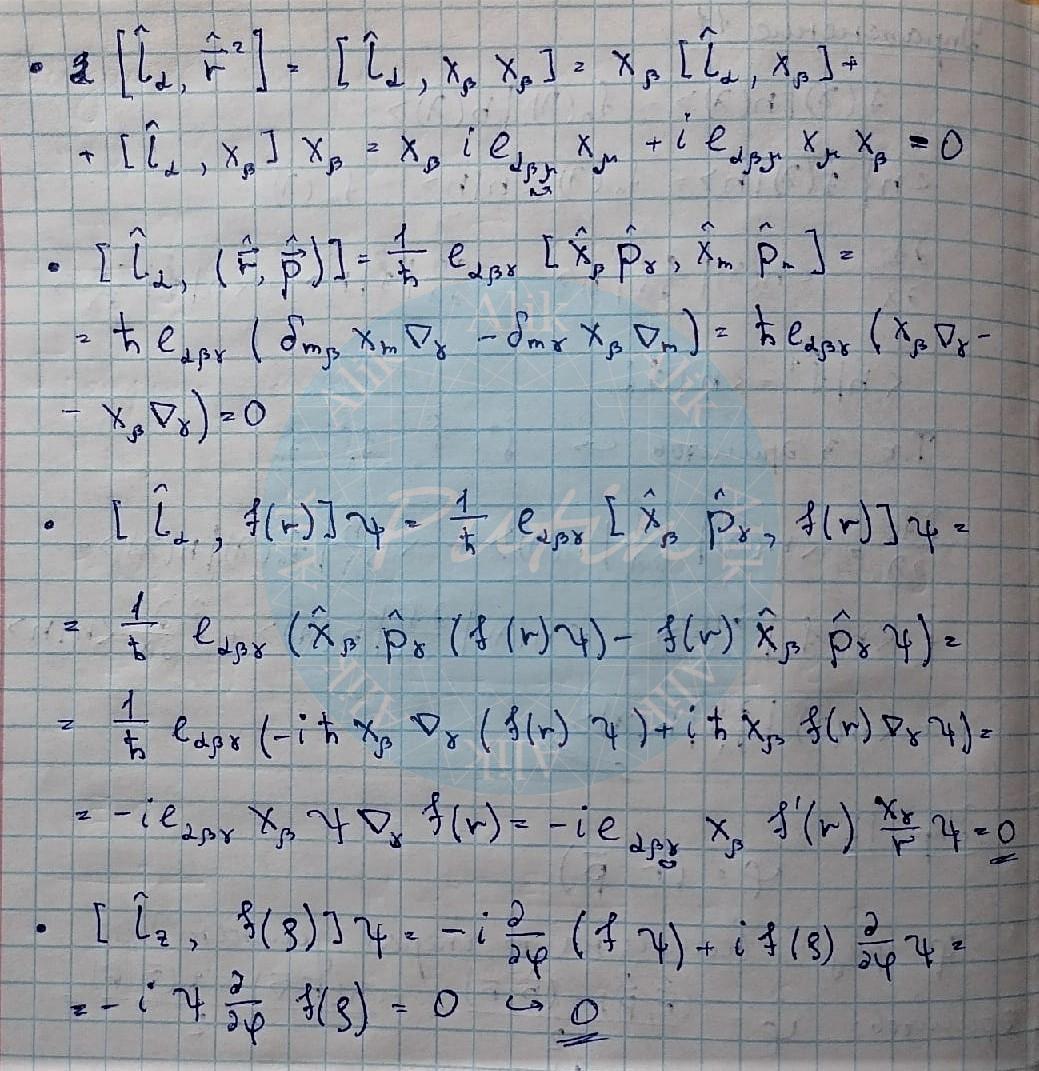 • [l̂_α, r̂²] = [l̂_α, x_β x_β] = x_β [l̂_α, x_β] +
+ [l̂_α, x_β] x_β = x_β i e_αβμ x_μ + i e_αβμ x_μ x_β = 0
• [l̂_α, (r̂, p̂)] = 1/ħ e_αβγ [x̂_β p̂_γ, x̂_m p̂_m] =
= ħ e_αβγ (δ_mβ x_m ∇_γ - δ_mγ x_β ∇_m) = ħ e_αβγ (x_β ∇_γ -
- x_β ∇_γ) = 0
• [l̂_α, f(r)] ψ = 1/ħ e_αβγ [x̂_β p̂_γ, f(r)] ψ =
= 1/ħ e_αβγ (x̂_β p̂_γ (f(r) ψ) - f(r) x̂_β p̂_γ ψ) =
= 1/ħ e_αβγ (-iħ x_β ∇_γ (f(r) ψ) + iħ x_β f(r) ∇_γ ψ) =
= -i e_αβγ x_β ψ ∇_γ f(r) = -i e_αβγ x_β f'(r) x_γ/r ψ = 0
• [l̂_z, f(ρ)] ψ = -i ∂/∂φ (f ψ) + i f(ρ) ∂/∂φ ψ =
= -i ψ ∂/∂φ f(ρ) = 0 ↪ 0
Alik
Alik
Alik
Alik
Putin
Alik
Alik
Alik
Alik